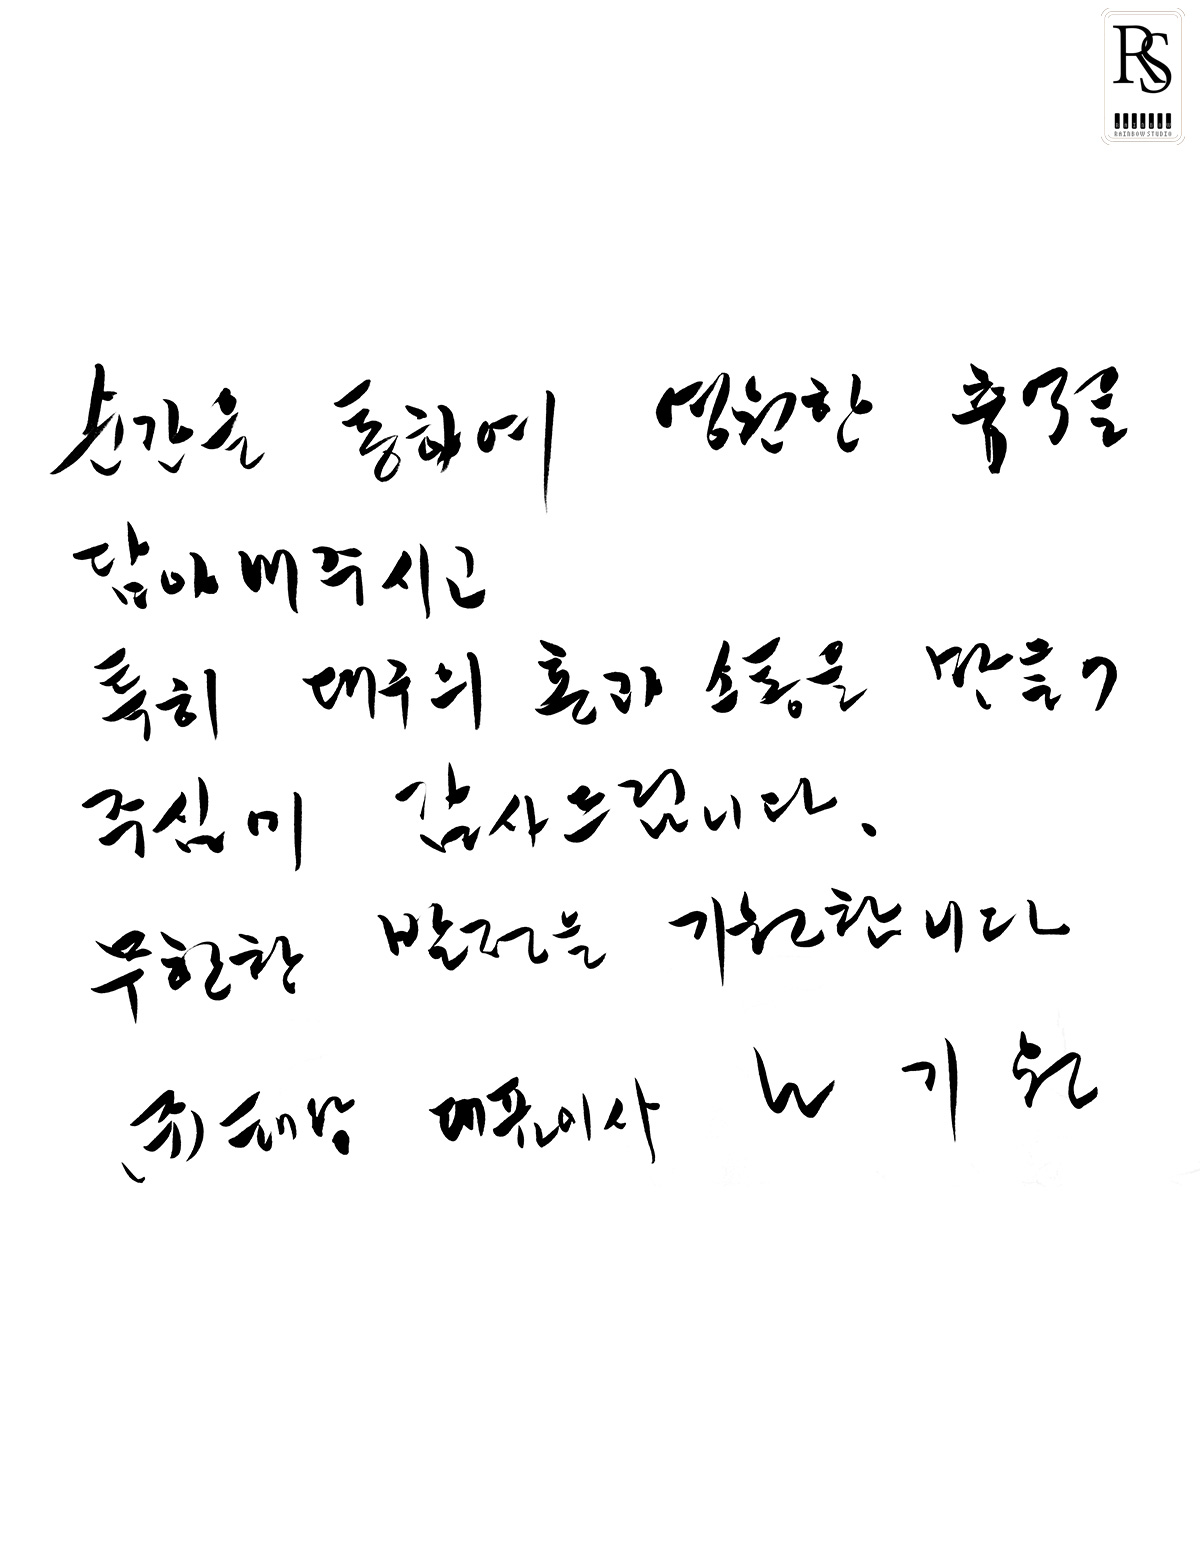 RS
RAINBOW STUDIO
순간을 통하여 영원한 추억을
담아내주시고
특히 대구의 혼과 소통을 만들어
주심에 감사드립니다.
무한한 발전을 기원합니다
(주)태왕 대표이사 노기원